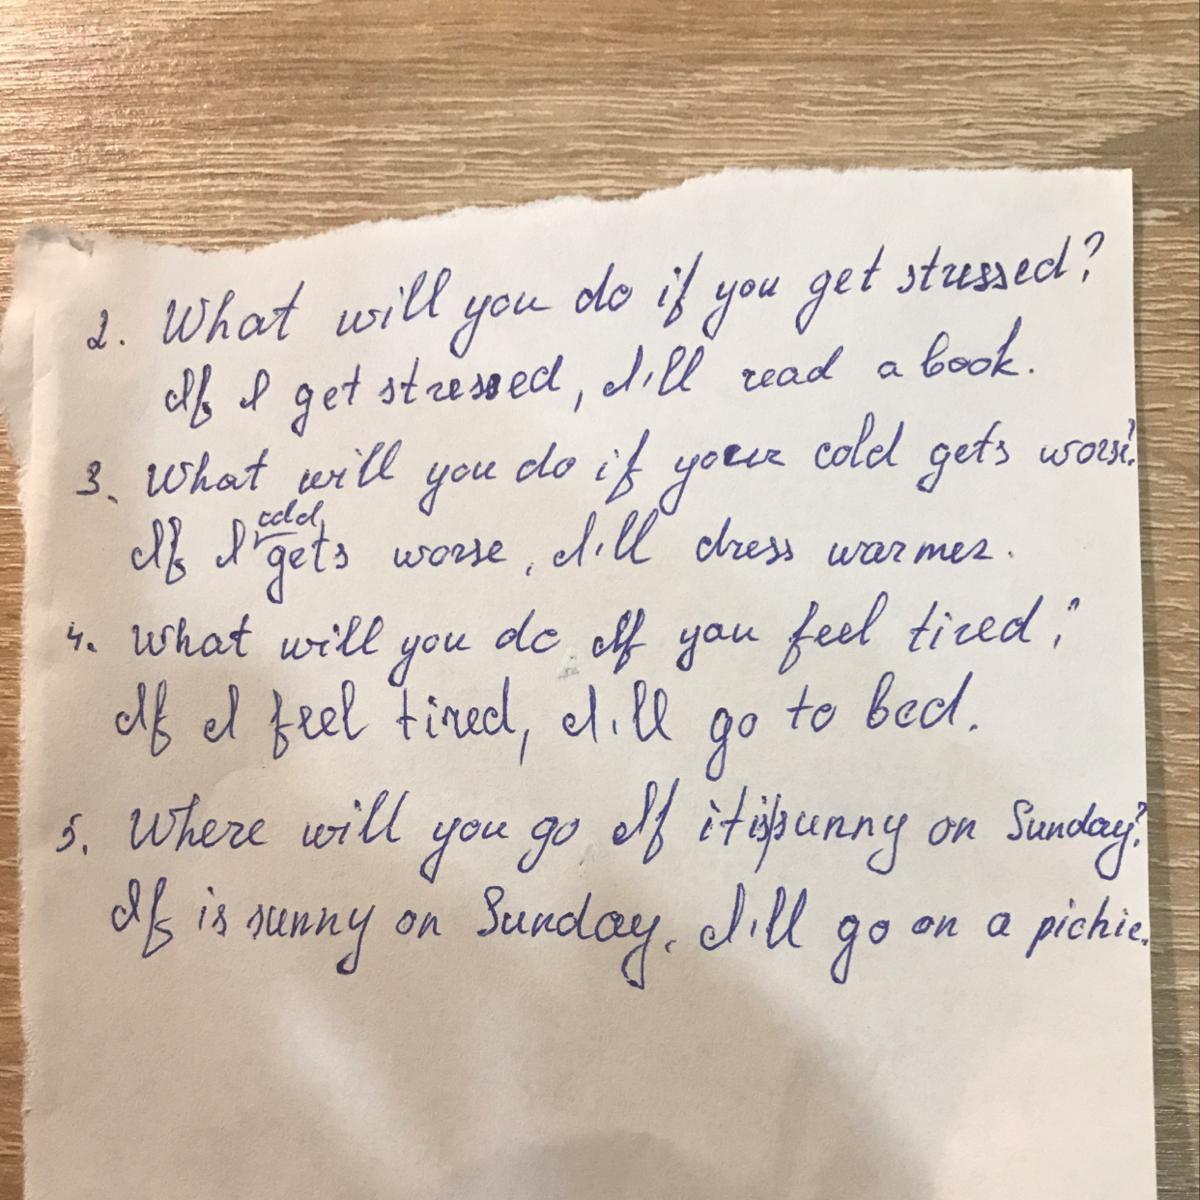 2. What will you do if you get stressed?
If I get stressed, I'll read a book.
3. What will you do if your cold gets worse?
If I cold gets worse, I'll dress warmer.
4. What will you do If you feel tired?
If I feel tired, I'll go to bed.
5. Where will you go If it is sunny on Sunday?
If is sunny on Sunday, I'll go on a pichic.